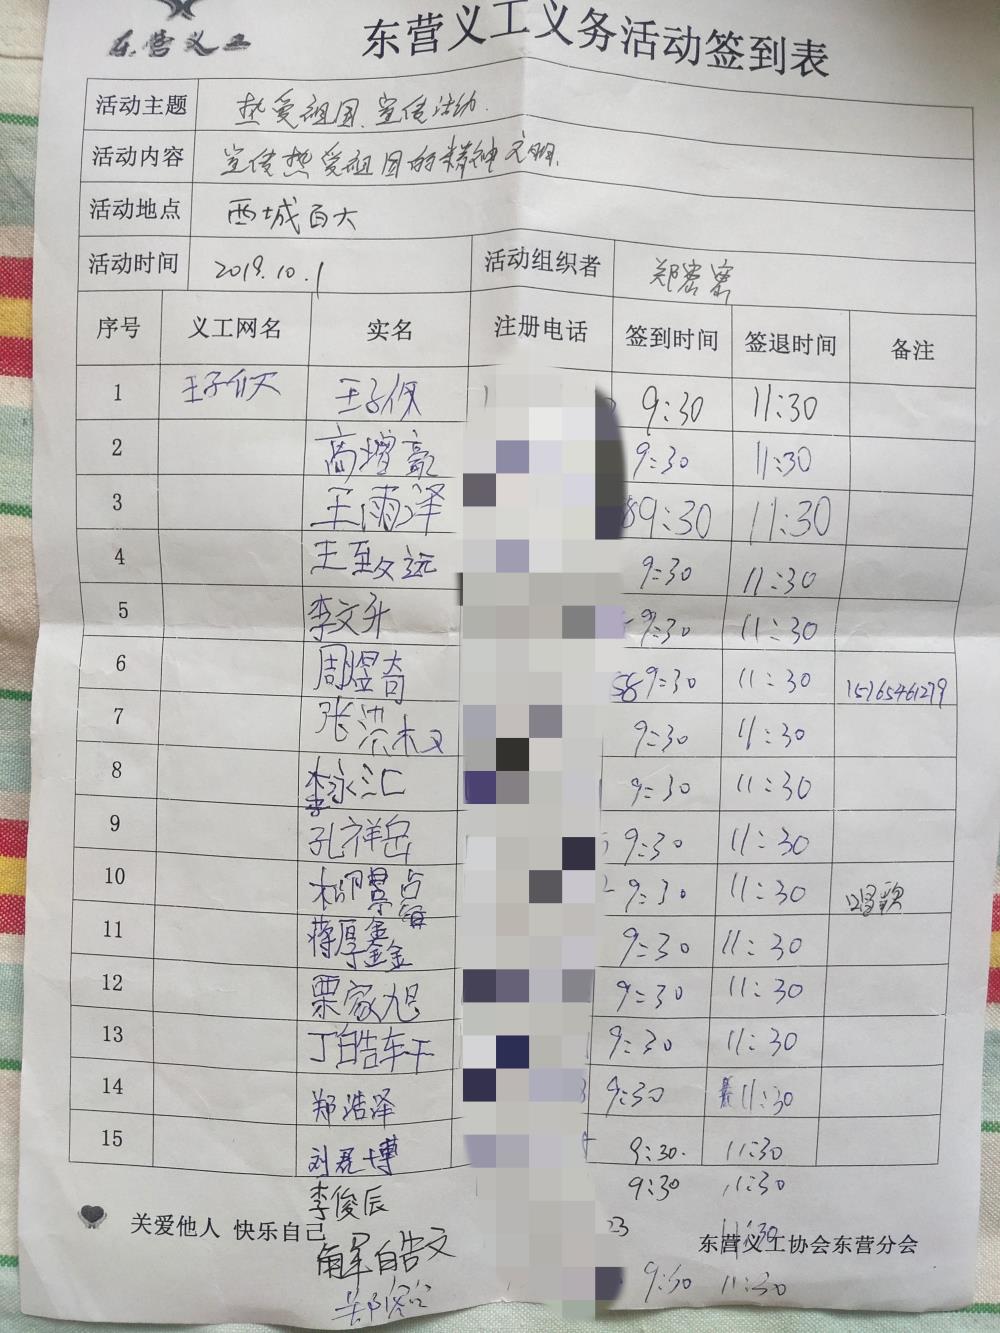 东营义工
东营义工义务活动签到表
活动主题 热爱祖国宣传活动.
活动内容 宣传热爱祖国的精神文明.
活动地点 西城百大
活动时间 2019.10.1 活动组织者 郑
序号 义工网名 实名 注册电话 签到时间 签退时间 备注
1 王子 王子 9:30 11:30
2 高增豪 9:30 11:30
3 王雨泽 89:30 11:30
4 王致远 9:30 11:30
5 李文升 9:30 11:30
6 周煜奇 58 9:30 11:30 15765461279
7 张 9:30 11:30
8 李永汇 9:30 11:30
9 孔祥岳 9:30 11:30
10 9:30 11:30 唱歌
11 蒋厚鑫 9:30 11:30
12 栗家旭 9:30 11:30
13 丁皓轩 9:30 11:30
14 郑浩泽 9:30 11:30
15 刘磊博 9:30 11:30
李俊辰 9:30 11:30
关爱他人 快乐自己
解皓文 23 11:30
东营义工协会东营分会
郑 9:30 11:30